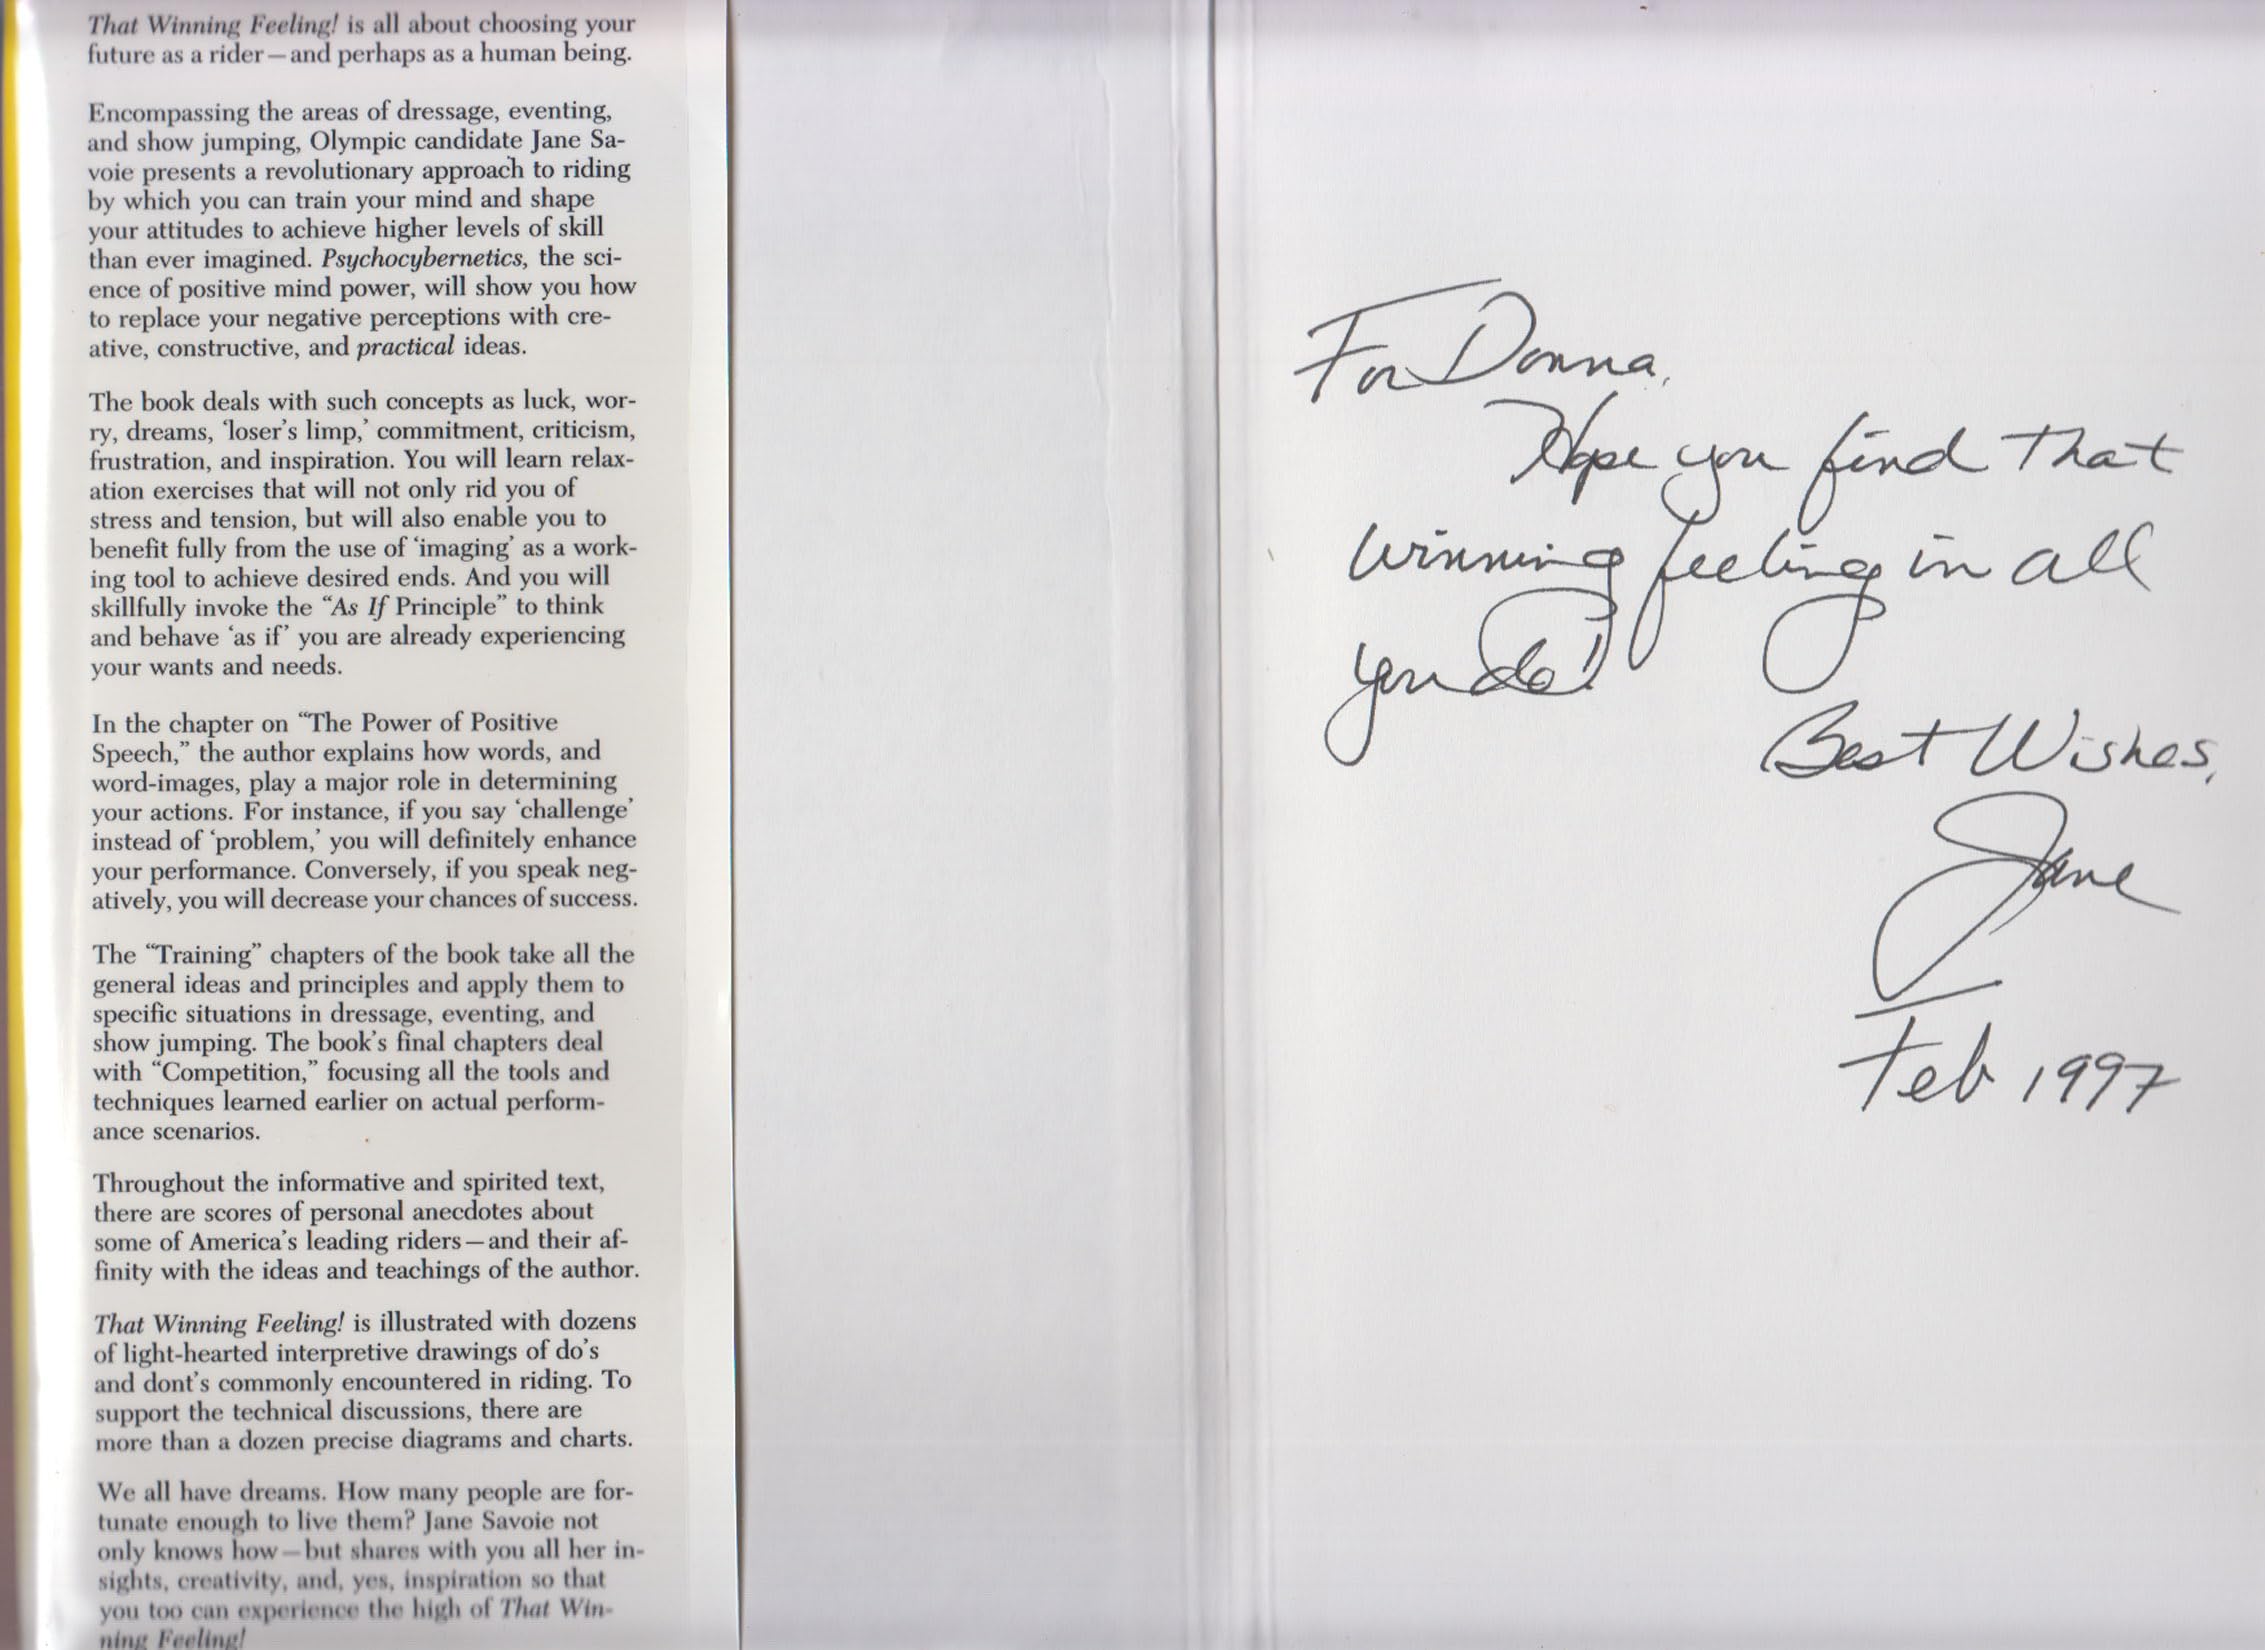 That Winning Feeling! is all about choosing your
future as a rider—and perhaps as a human being.
Encompassing the areas of dressage, eventing,
and show jumping, Olympic candidate Jane Sa-
voie presents a revolutionary approach to riding
by which you can train your mind and shape
your attitudes to achieve higher levels of skill
than ever imagined. Psychocybernetics, the sci-
ence of positive mind power, will show you how
to replace your negative perceptions with cre-
ative, constructive, and practical ideas.
The book deals with such concepts as luck, wor-
ry, dreams, ‘loser’s limp,’ commitment, criticism,
frustration, and inspiration. You will learn relax-
ation exercises that will not only rid you of
stress and tension, but will also enable you to
benefit fully from the use of ‘imaging’ as a work-
ing tool to achieve desired ends. And you will
skillfully invoke the “As If Principle” to think
and behave ‘as if’ you are already experiencing
your wants and needs.
In the chapter on “The Power of Positive
Speech,” the author explains how words, and
word-images, play a major role in determining
your actions. For instance, if you say ‘challenge’
instead of ‘problem,’ you will definitely enhance
your performance. Conversely, if you speak neg-
atively, you will decrease your chances of success.
The “Training” chapters of the book take all the
general ideas and principles and apply them to
specific situations in dressage, eventing, and
show jumping. The book’s final chapters deal
with “Competition,” focusing all the tools and
techniques learned earlier on actual perform-
ance scenarios.
Throughout the informative and spirited text,
there are scores of personal anecdotes about
some of America’s leading riders—and their af-
finity with the ideas and teachings of the author.
That Winning Feeling! is illustrated with dozens
of light-hearted interpretive drawings of do’s
and dont’s commonly encountered in riding. To
support the technical discussions, there are
more than a dozen precise diagrams and charts.
We all have dreams. How many people are for-
tunate enough to live them? Jane Savoie not
only knows how—but shares with you all her in-
sights, creativity, and, yes, inspiration so that
you too can experience the high of That Win-
ning Feeling!
For Donna,
Hope you find that
winning feeling in all
you do!
Best Wishes,
Jane
Feb 1997